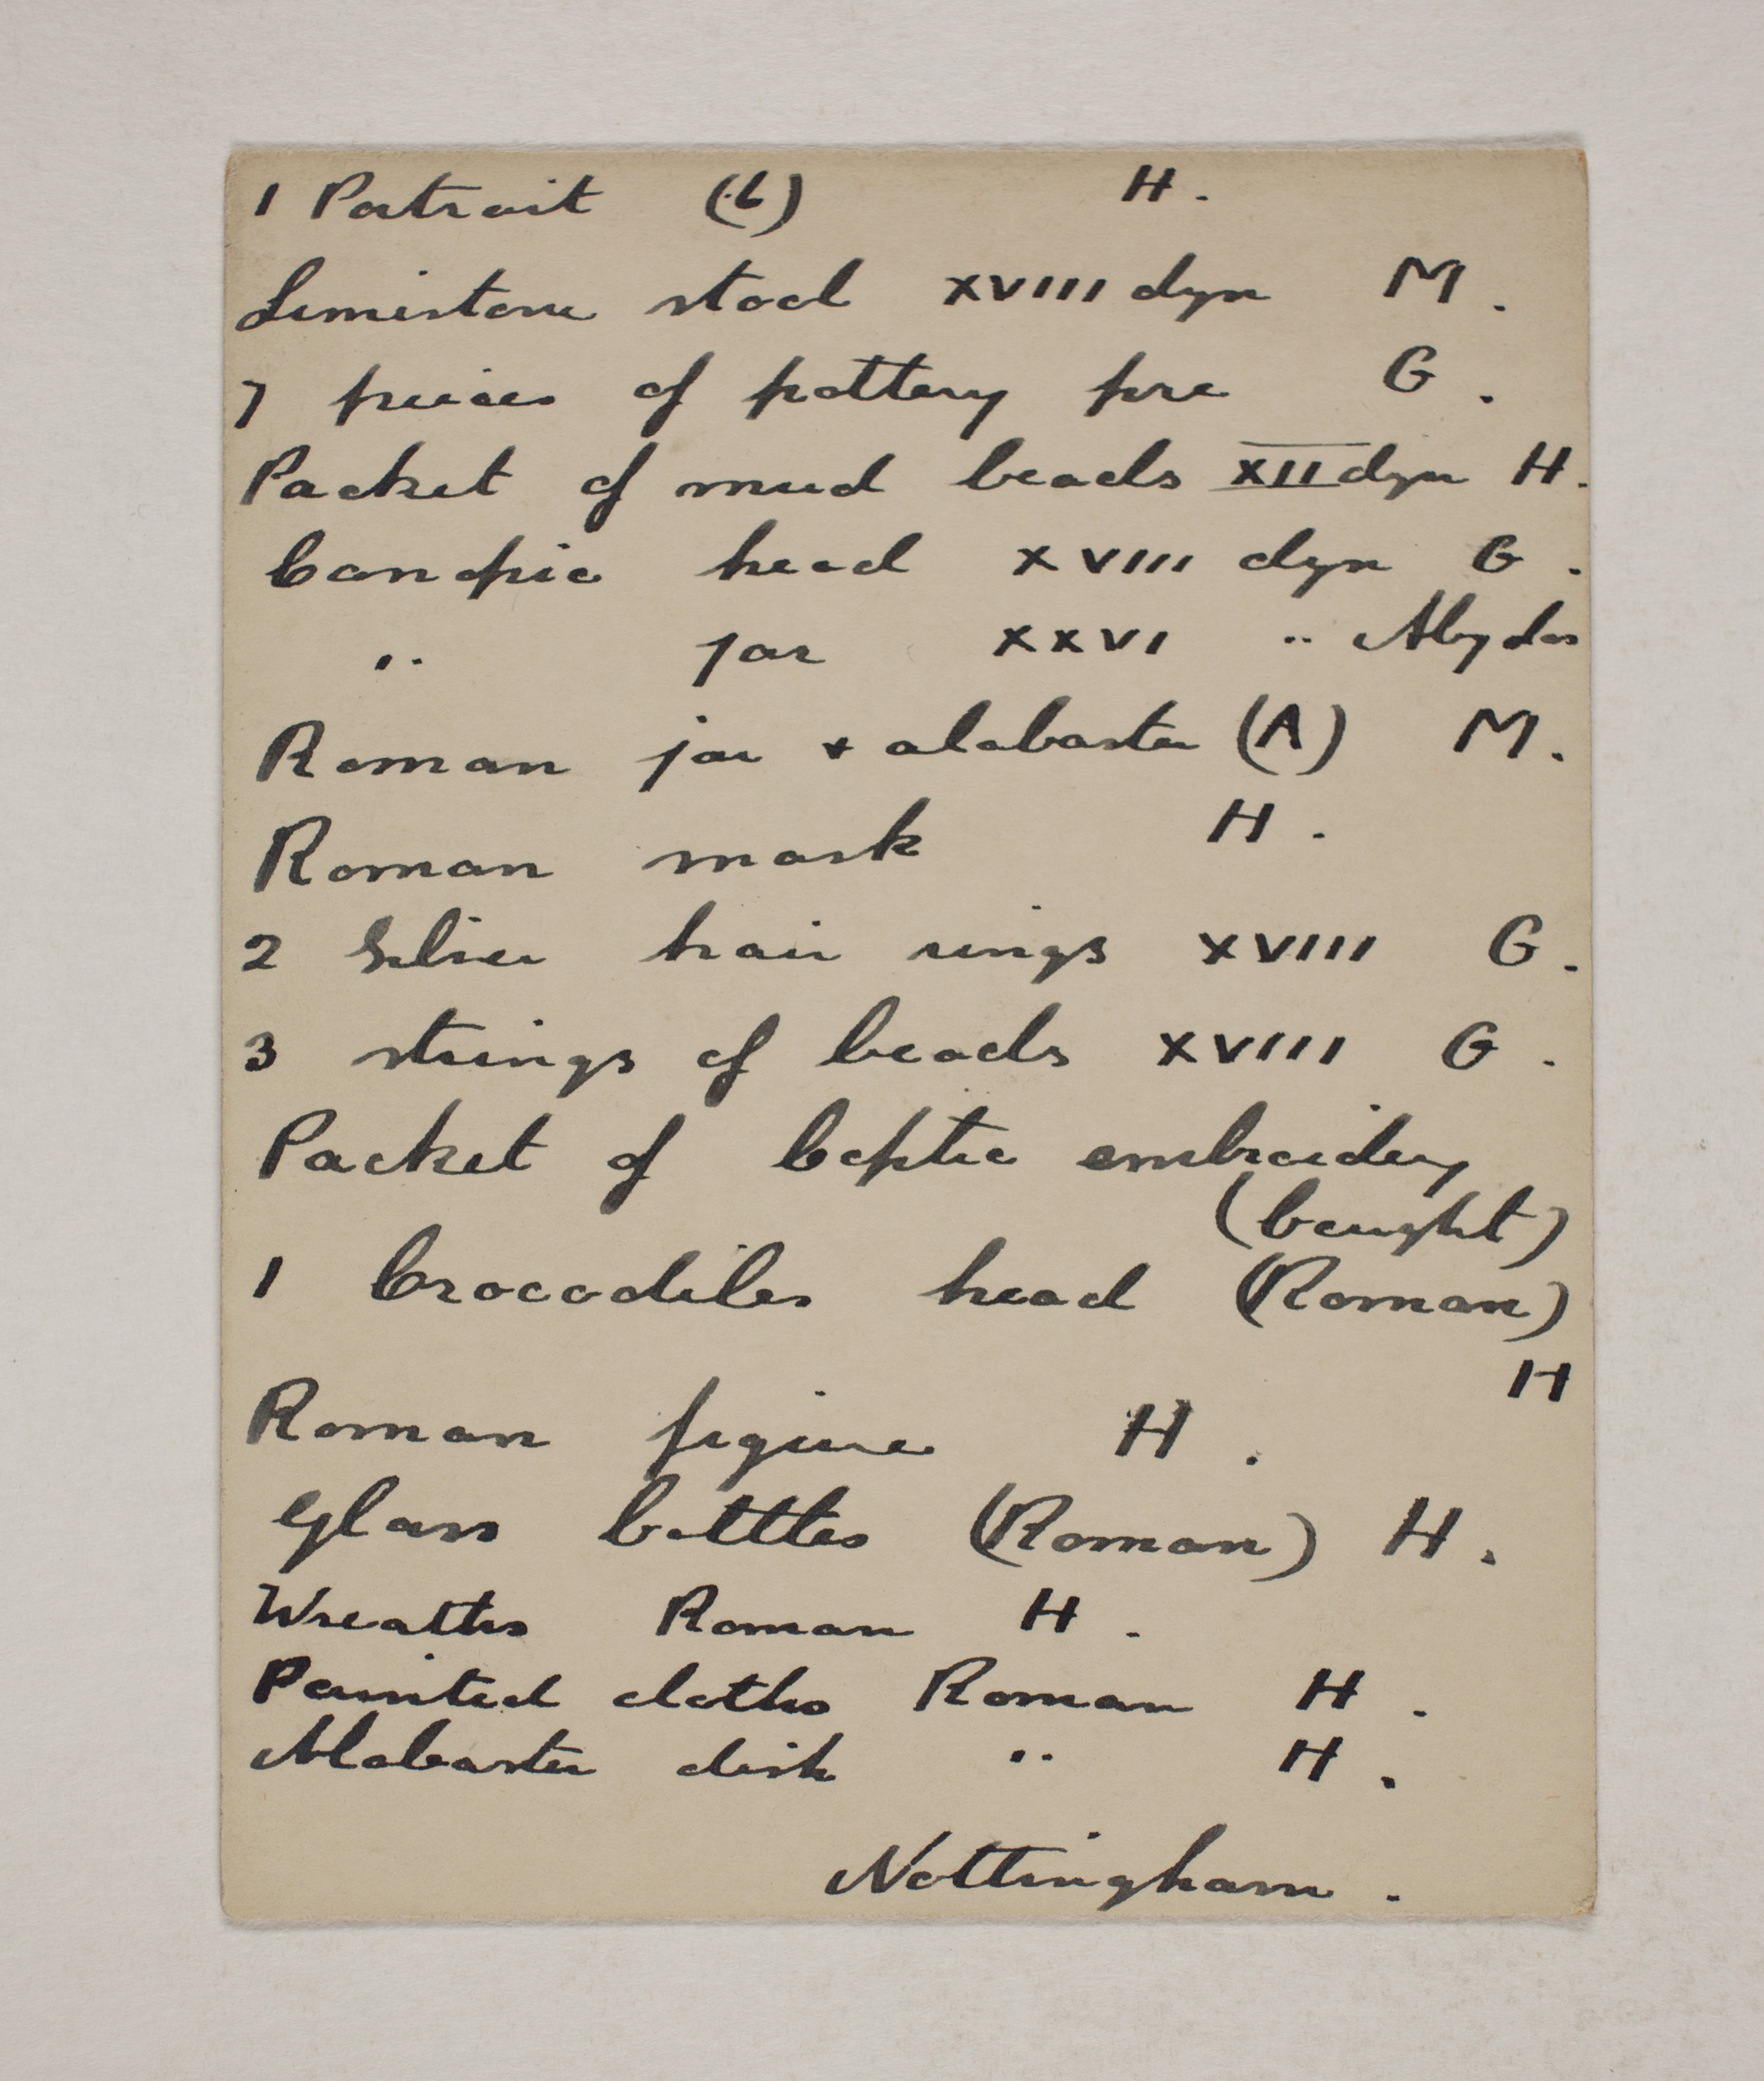 1 Portrait (6) H.
Limestone stool XVIII dyn M.
7 pieces of pottery pre G.
Packet of mud beads XII dyn H.
Canopic head XVIII dyn G.
" jar XXVI " Abydos
Roman jar + alabaster (A) M.
Roman mask H.
2 Silver hair rings XVIII G.
3 strings of beads XVIII G.
Packet of Coptic embroidery
(bought)
1 Crocodiles head (Roman)
H
Roman figure H.
Glass bottles (Roman) H.
Wreaths Roman H.
Painted cloths Roman H.
Alabaster dish " H.
Nottingham.